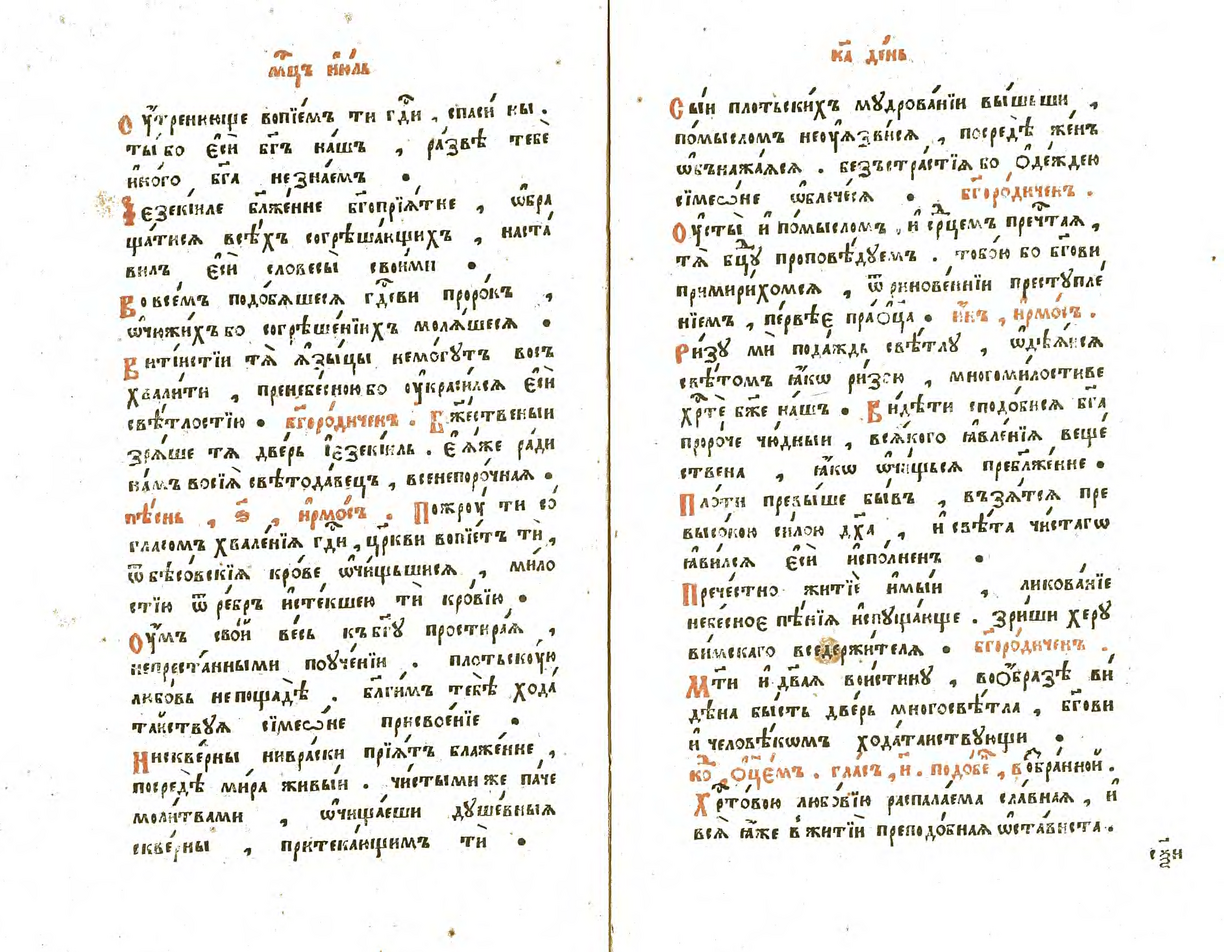 мц҃ъ і҆ю́ль
Оу҆́тренюще вопїе́мъ ти гд҇и , спаси́ ны .
ты́ бо є҆сѝ бг҃ъ на́шъ , ра́звѣ тебѐ
и҆но́го бг҃а незна́емъ .
І҆езекі́иле бл҃же́нне бг҃опрїѧ́тне , ѡ҆бра
ща́тисѧ всѣ́хъ согрѣша́ющихъ , наста́
вилъ є҆сѝ словесы̀ свои́ми .
Во все́мъ подобѧ́шесѧ гд҇еви проро́къ ,
ѡ҆чюжи́хъ бо согрѣше́нїихъ молѧ́шесѧ .
Вити́истїи тѧ̀ ꙗ҆зы́цы немо́гутъ восъ
хвали́ти , пренебе́сною бо оу҆краси́лсѧ є҆сѝ
свѣ́тлостїю . бг҃оро́диченъ . Бж҃е́ственыи
зрѧ́ше тѧ̀ две́рь і҆езекі́иль . є҆ѧ́же ра́ди
на́мъ восїѧ̀ свѣтода́вецъ , всенепоро́чнаѧ .
пѣ́снь , ѕ҃ , і҆рмо́съ . Пожроу́ ти со́
гла́сомъ хвале́нїѧ гд҇и , цр҃кви вопїе́тъ тѝ ,
ѿ бѣсо́вскїѧ кро́ве ѡ҆чи́щьшисѧ , ми́ло
стїю ѿ ре́бръ и҆сте́кшею тѝ кро́вїю .
Оу҆́мъ сво́й ве́сь къ бг҃у простира́ѧ ,
непреста́нными поуче́нїи . пло́тьскоую
любо́вь непощадѣ̀ . бл҃ги́мъ тебѣ̀ хода́
та́йствуѧ сїмео́не присвое́нїе .
Нискве́рны нивра́ски прїѧ́тъ блаже́нне ,
посредѣ̀ ми́ра живы́и . чи́стыми же па́че
моли́твами , ѡ҆чища́еши дꙋше́вныѧ
скве́рны , притека́ющимъ тѝ .
к҃а де́нь
Сы́и пло́тьскихъ мꙋдрова́нїи вы́шьши ,
по́мысломъ неоуѧзви́сѧ , посредѣ̀ же́нъ
ѡ҆бънажа́ѧсѧ . безъстра́стїѧ бо ѻ҆де́ждею
сїмео́не ѡ҆блече́сѧ . бг҃оро́диченъ .
Оу҆сты̀ и҆ по́мысломъ , и҆ ср҃цемъ преч҇таѧ ,
тѧ̀ бц҃у проповѣ́дꙋемъ . тобо́ю бо бг҃ови
примири́хомсѧ , ѿриновє́ннїи преступле́
нїемъ , пе́рвѣе пра́ѻц҃а . и҆нъ , і҆рмо́съ .
Ри́зу мѝ пода́ждь свѣ́тлу , ѡ҆дѣѧ́исѧ
свѣ́томъ ꙗ҆́кѡ ри́зою , многоми́лостиве
хр҇тѐ бж҃е на́шъ . Ви́дѣти сподо́бисѧ бг҃а
проро́че чю́дныи , всѧ́кого ꙗ҆вле́нїѧ веще́
ствена , ꙗ҆́кѡ ѡ҆чи́щьсѧ преблаже́нне .
Пло́ти превы́ше бы́въ , възѧ́тсѧ пре
высо́кою си́лою дх҃а , и҆ свѣ́та чи́стагѡ
ꙗ҆ви́лсѧ є҆сѝ и҆спо́лненъ .
Пречє́стно житїѐ и҆мы́и , ликова́нїе
небе́сноє пѣ́нїѧ и҆спуща́юще . зри́ши херу
ви́мскаго вседержи́телѧ . бг҃оро́диченъ .
Мт҃и и҆ два́ѧ вои́стину , воѻ́бразѣ ви́
дѣна бы́сть две́рь многосвѣ́тла , бг҃ови
и҆ человѣ́кѡмъ хода́таиствующи .
ко҇ , ѻ҆ц҃е́мъ . гла́съ , и҃ . подо́бе , во́бранной .
Хр҇то́вою любо́вїю распала́ема сла́внаѧ , и҆
всѧ̀ ꙗ҆́же в житїѝ преподо́бнаѧ ѡ҆ста́виста .